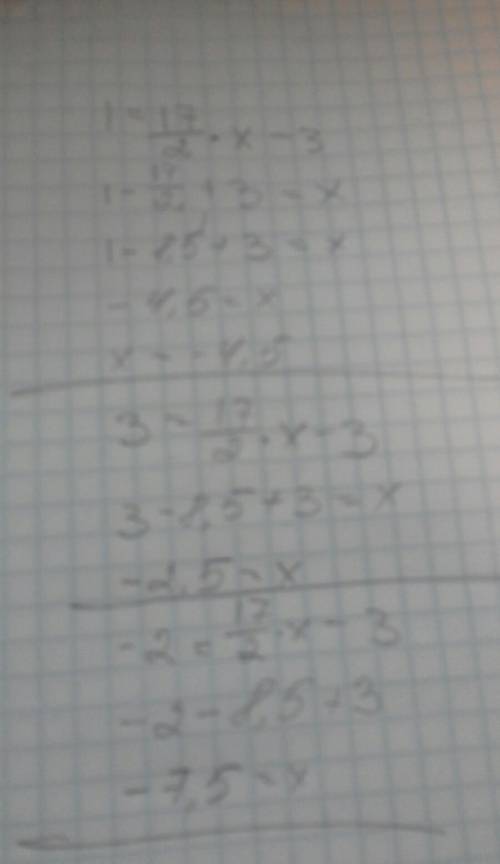 1 = 17/2 · x - 3
1 - 17/2 + 3 = x
1 - 8,5 + 3 = x
- 4,5 = x
x = - 4,5
3 = 17/2 · x - 3
3 - 8,5 + 3 = x
- 2,5 = x
- 2 = 17/2 · x - 3
- 2 - 8,5 + 3
- 7,5 = x